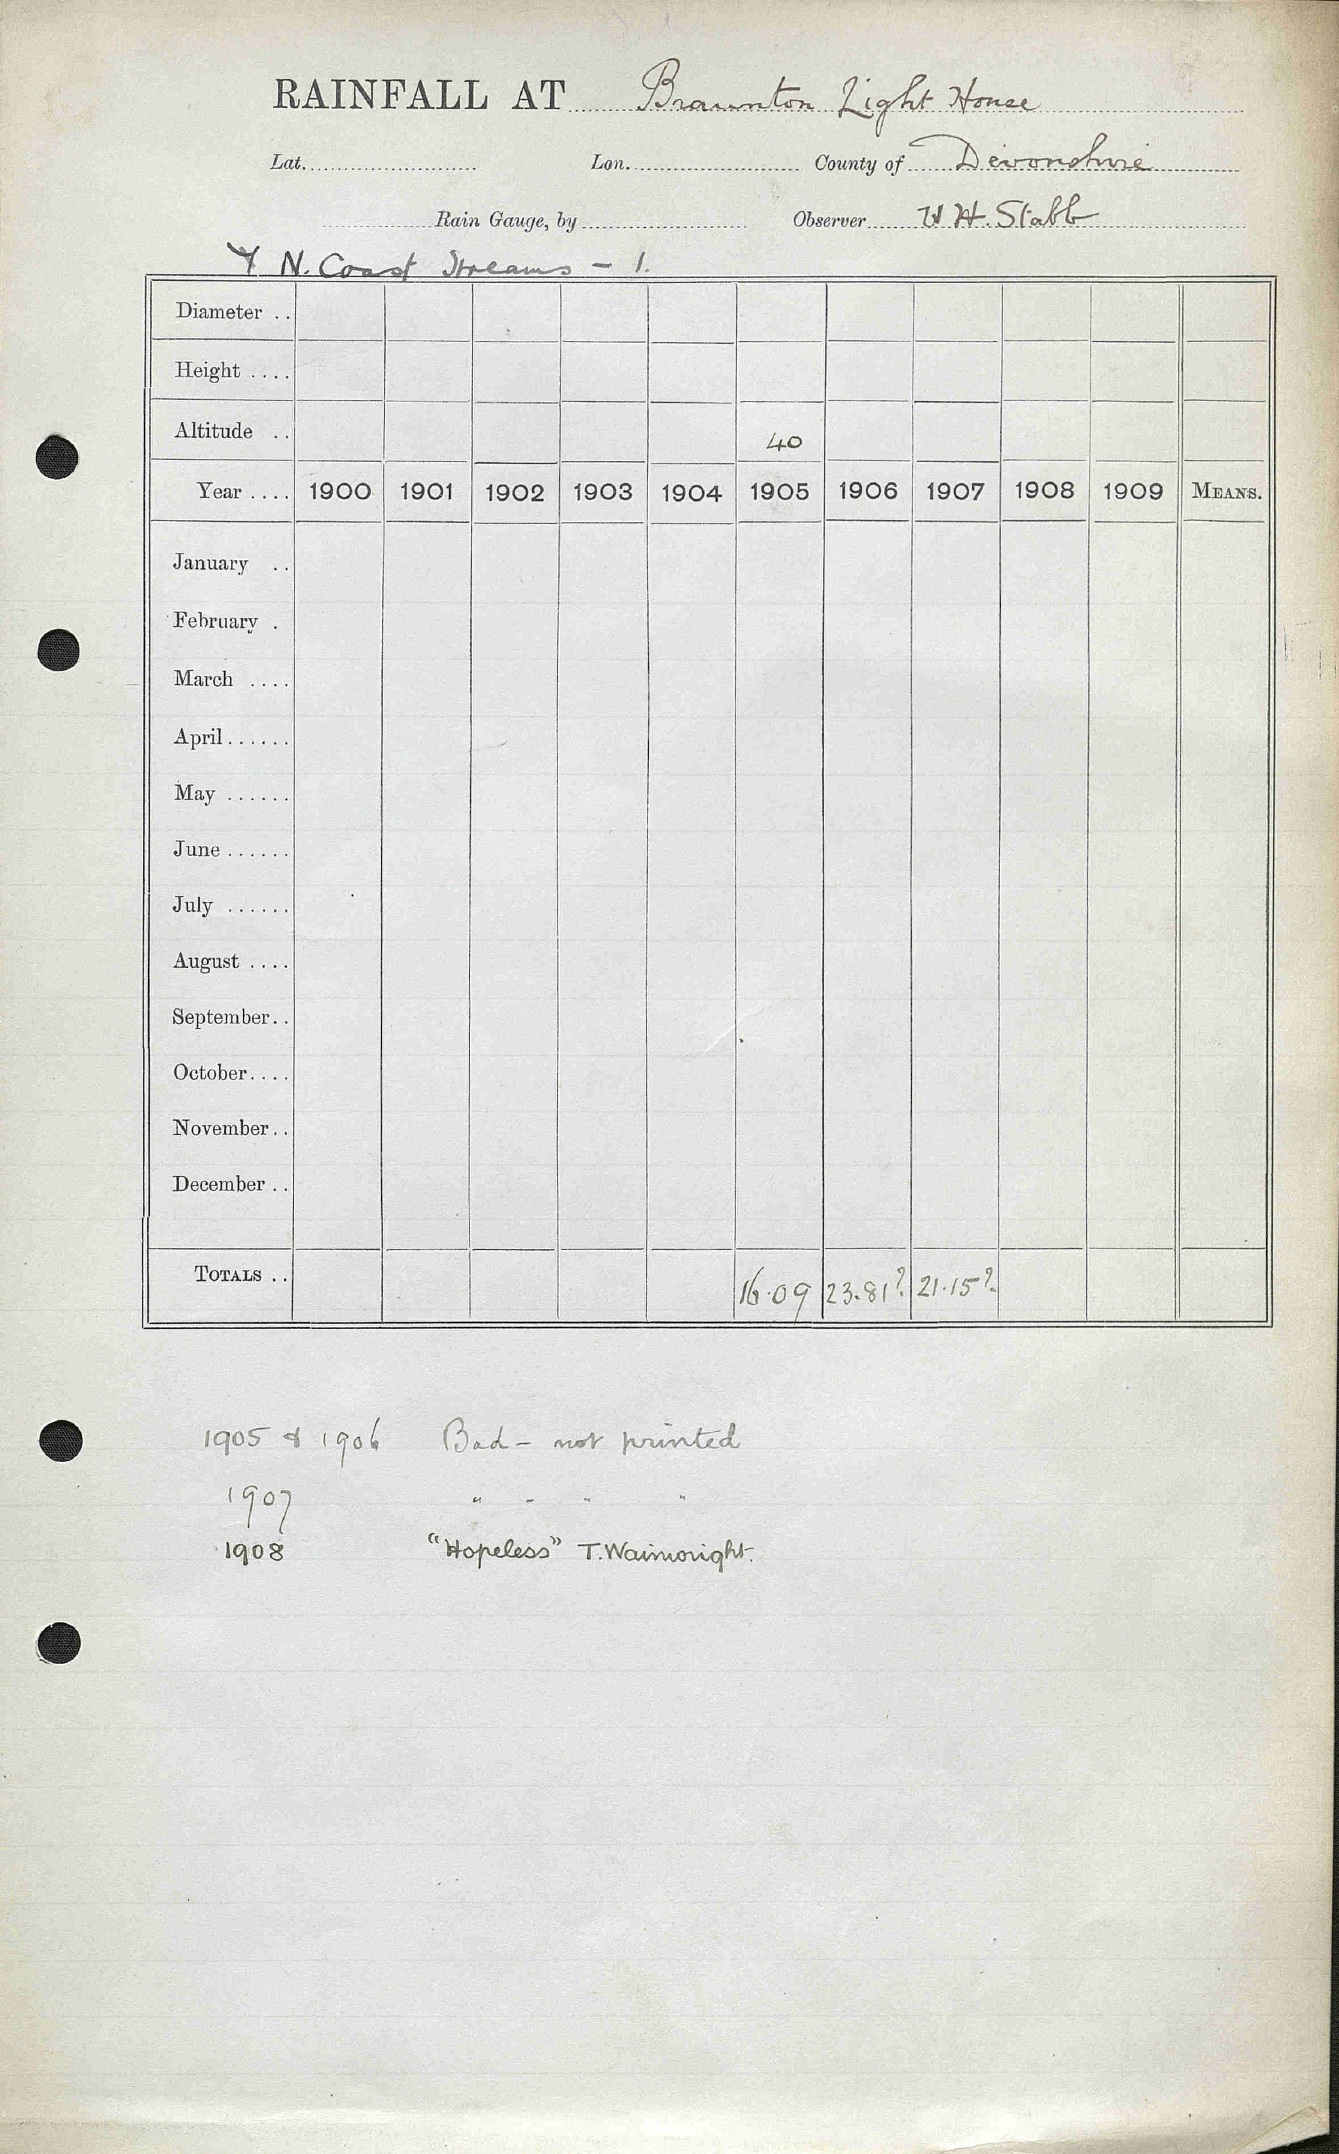 RAINFALL AT Braunton Light House
Lat. Lon. County of Devonshire
Rain Gauge, by Observer W H. Stabb
N. Coast Streams - 1.
Diameter ..
Height ....
Altitude .. 40
Year .... 1900 1901 1902 1903 1904 1905 1906 1907 1908 1909 MEANS.
January ..
February .
March ....
April......
May ......
June ......
July ......
August ....
September..
October....
November..
December ..
TOTALS .. 16.09 23.81? 21.15?
1905 & 1906 Bad - not printed
1907 " - " "
1908 "Hopeless" T. Wainwright.